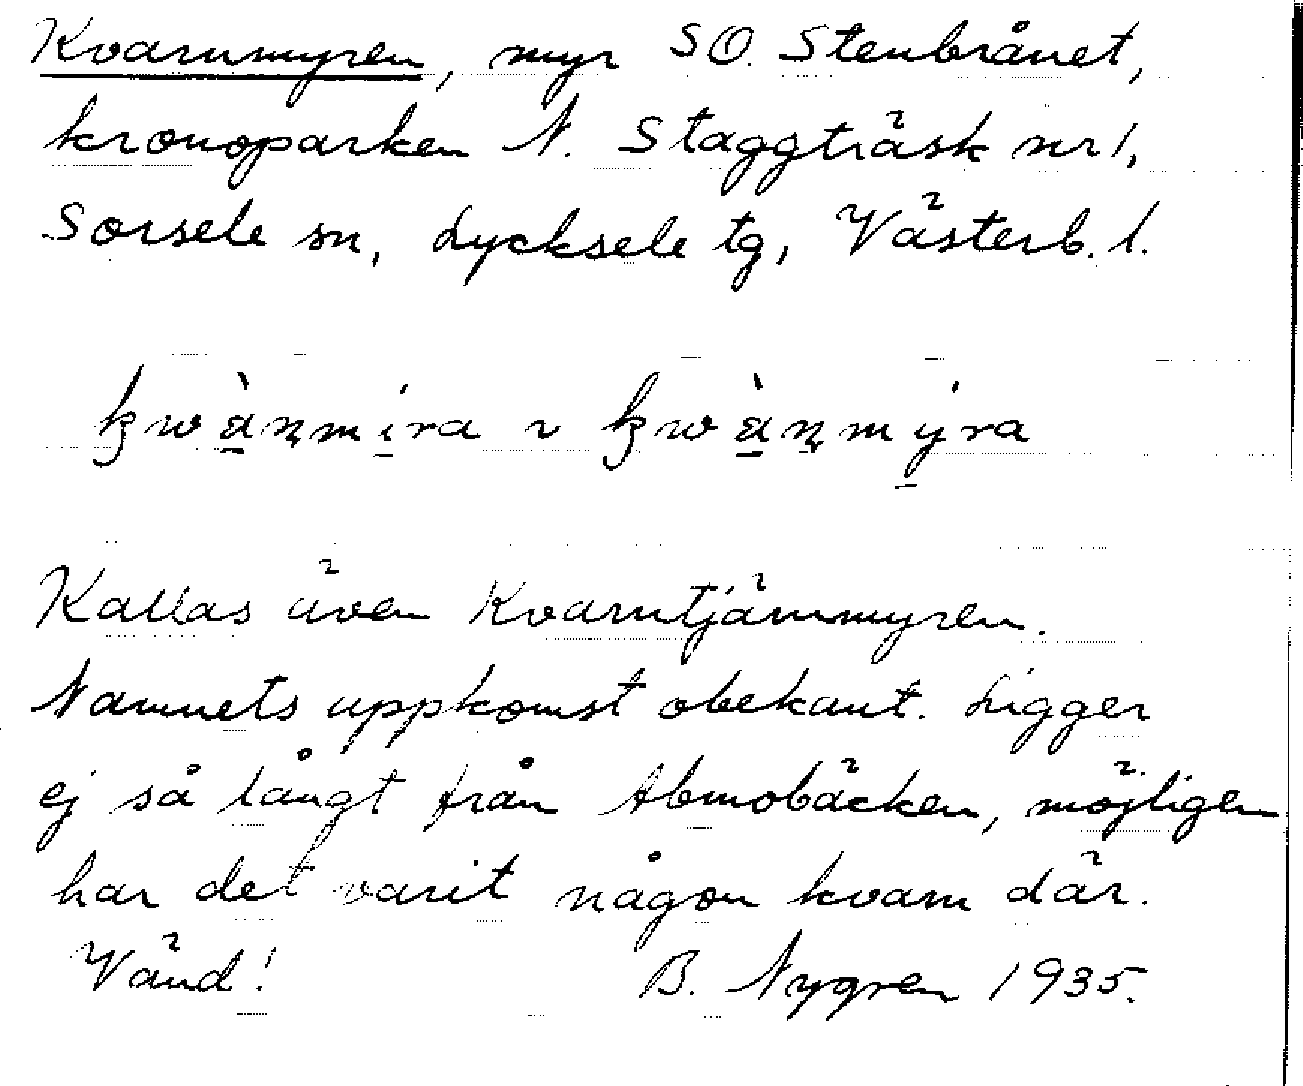 Kvarnmyren, myr SO. Stenbrånet,
kronoparken N. Staggträsk nr 1,
Sorsele sn, Lycksele tg, Västerb. l.
kwàṇmíra ~ kwàṇmýra
Kallas även Kvarntjärnmyren.
Namnets uppkomst obekant. Ligger
ej så långt från Abmobäcken, möjligen
har det varit någon kvarn där.
Vänd! B. Nygren 1935.